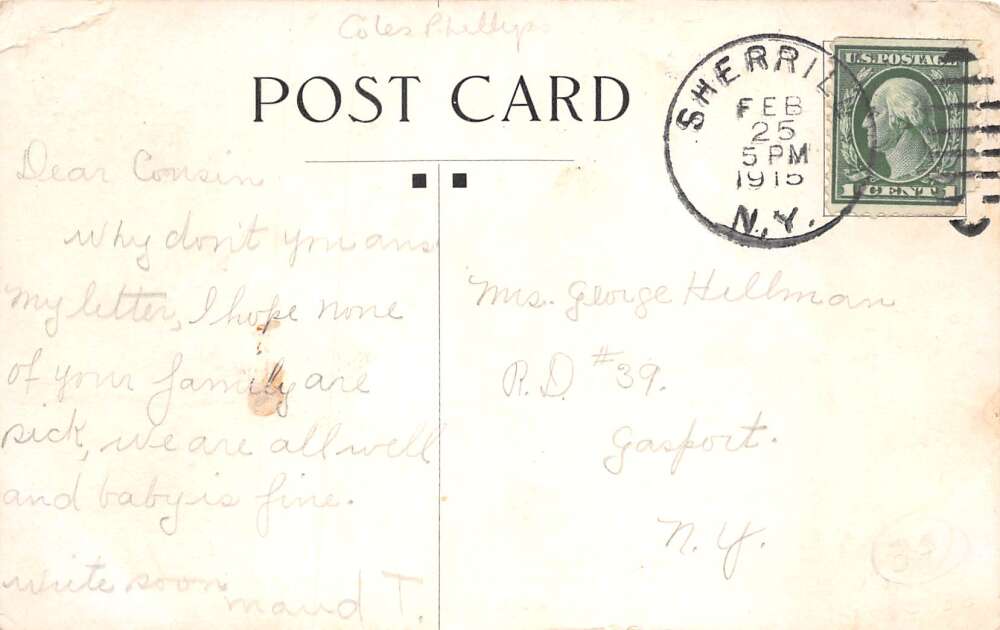 Coles Phillips
POST CARD
SHERRILL
FEB
25
5 PM
1915
N.Y.
U.S. POSTAGE
1 CENT 1
Dear Cousin
Why don't you ans
my letter, I hope none
of your family are
sick, we are all well
and baby is fine.
write soon
maud T.
Mrs. George Hillman
R.D. #39.
Gasport.
N.Y.